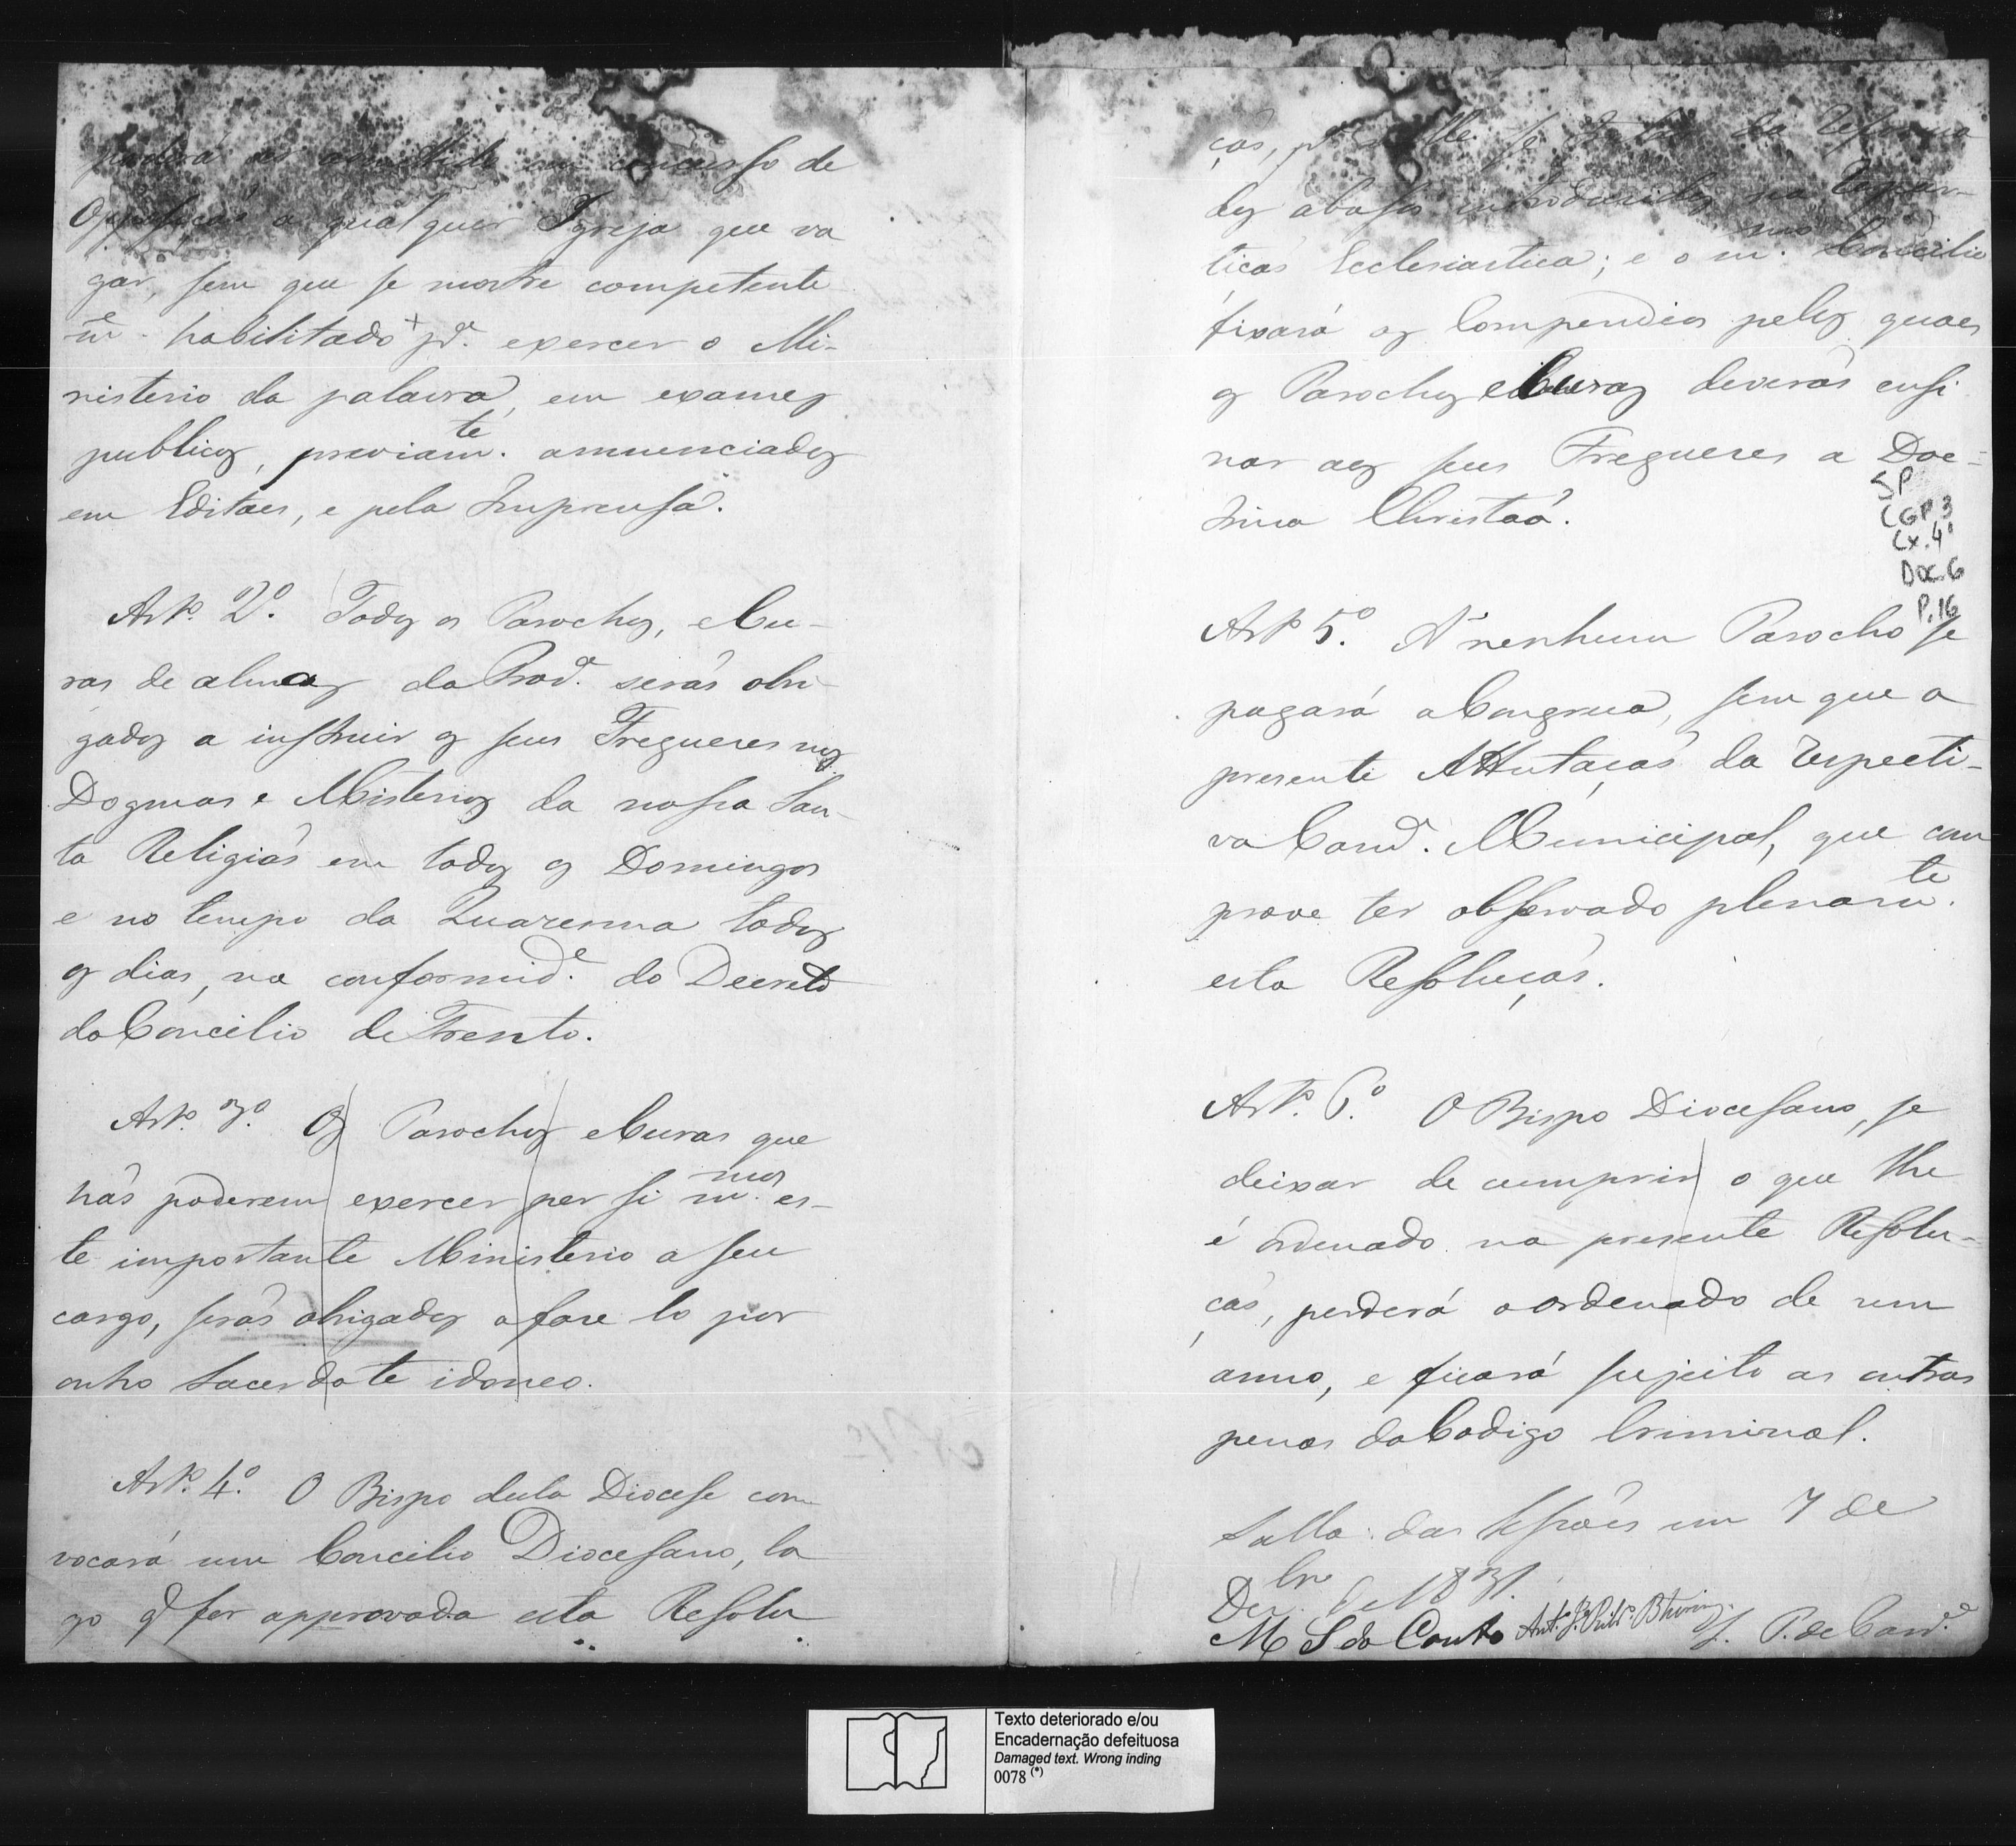 poderá ser admittido em concurso de
Opposição a qualquer Igreja que va
gar, sem que se mostre competente
m.e habilitado + p.a exercer o Mi-
nisterio da palavra, em exames
publicos, previam.te annunciados
em Editaes, e pela Imprensa.
Art.o 2.o Todos os Parochos, e Cu-
ras de almas da Prov.a serão obri-
gados a instruir os seus Freguezes nos
Dogmas e Misterios da nossa San-
ta Religião em todos os Domingos
e no tempo da Quaresma todos
os dias, na conformid.e do Decreto
do Concilio de Trento.
Art.o 3.o Os Parochos e Curas que
não poderem exercer per si m.mos es-
te importante Ministerio a seu
cargo, serão obrigados a faze lo por
outro Sacerdote idoneo.
Art.o 4.o O Bispo desta Diocese con
vocará um Concilio Diocesano, lo
go q' for approvada esta Resolu
ção, p.a se da reforma
dos abusos introduzidos na Repar-
tição Ecclesiastica; e o m.mo Concilio
fixará os Compendios pelos quaes
os Parochos e Curas deverão ensi
nar aos seus Freguezes a Dou-
trina Christãa.
SP
CGP 3
Cx. 41
Doc. 6
P. 16
Art.o 5.o A nenhum Parocho se
pagará a Congrua, sem que a
presente Attestação da respecti-
va Cam.a Municipal, que com
prove ter observado plenam.te
esta Resolução.
Art.o 6.o O Bispo Diocesano, se
deixar de cumprir o que lhe
é ordenado na presente Resolu-
ção, perderá o ordenado de um
anno, e ficará sujeito as outras
penas do Codigo Criminal.
Salla das Sessões em 7 de
Dez.bro de 1831.
M S do Couto Ant.o J.e Rib.o Bhering. J. P. de Carv.o
Texto deteriorado e/ou
Encadernação defeituosa
Damaged text. Wrong inding
0078 (*)